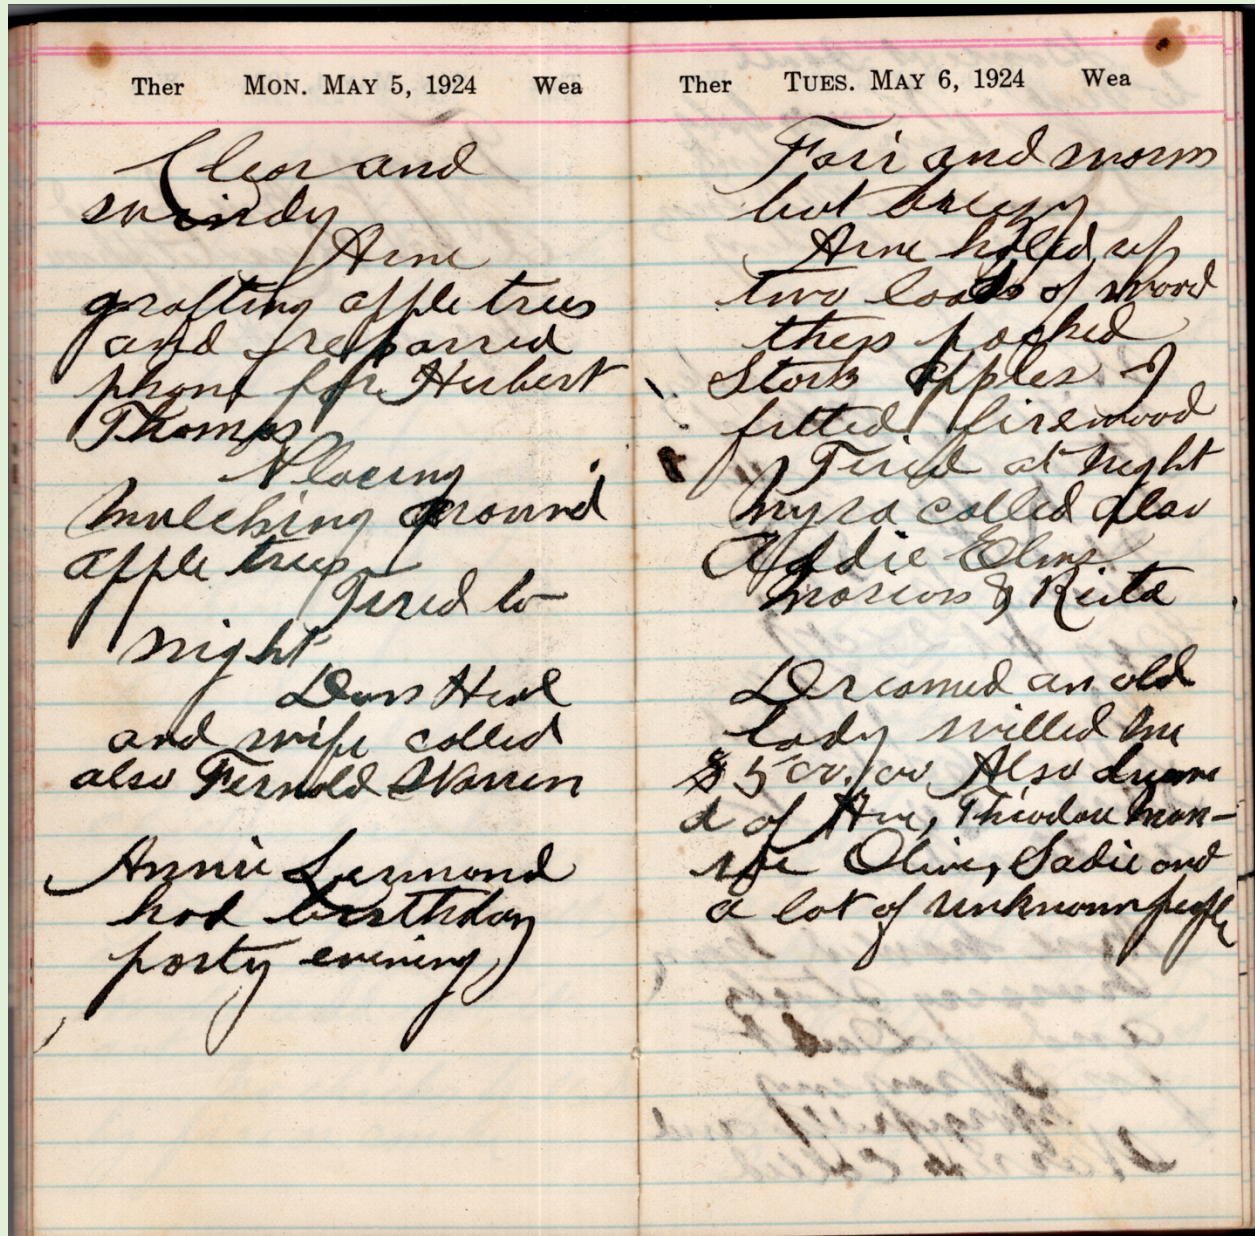 Ther MON. MAY 5, 1924 Wea
Clear and
windy
Arne
grafting apple trees
and repaired
phone for Herbert
Thomas
Placing
mulching around
apple trees
Tired to
night
and wife called
also Fernald Warren
Annie Lermond
had birthday
party evening
Ther TUES. MAY 6, 1924 Wea
Fair and warm
but breezy
Arne hauled up
two loads of wood
then packed
Stark apples &
fitted firewood
Tired at night
Myra called also
Addie Elms
Marion & Rieta
Dreamed an old
lady willed me
$500.00 Also dreame
d of Theodore Mon-
roe Olive, Sadie and
a lot of unknown people